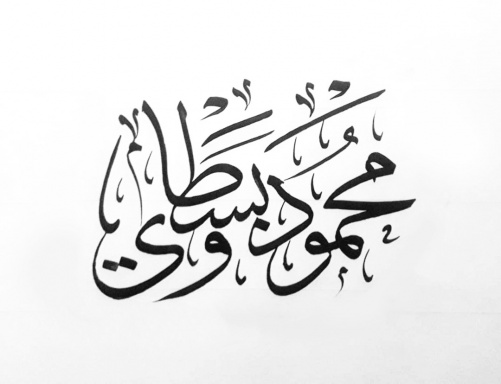 محمود بسطاوي